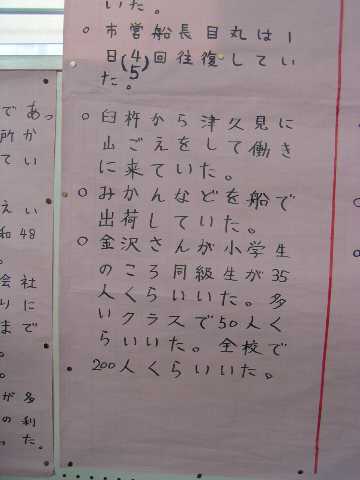 いた。
○ 市営船長目丸は1
日(4/5)回往復してい
た。
○ 臼杵から津久見に
山ごえをして働き
に来ていた。
○ みかんなどを船で
出荷していた。
○ 金沢さんが小学生
のころ同級生が35
人くらいいた。多
いクラスで50人く
らいいた。全校で
200人くらいいた。
であっ
所か
てい
えい
和48
。
会社
りに
まで
。
。
が多
の利
った。